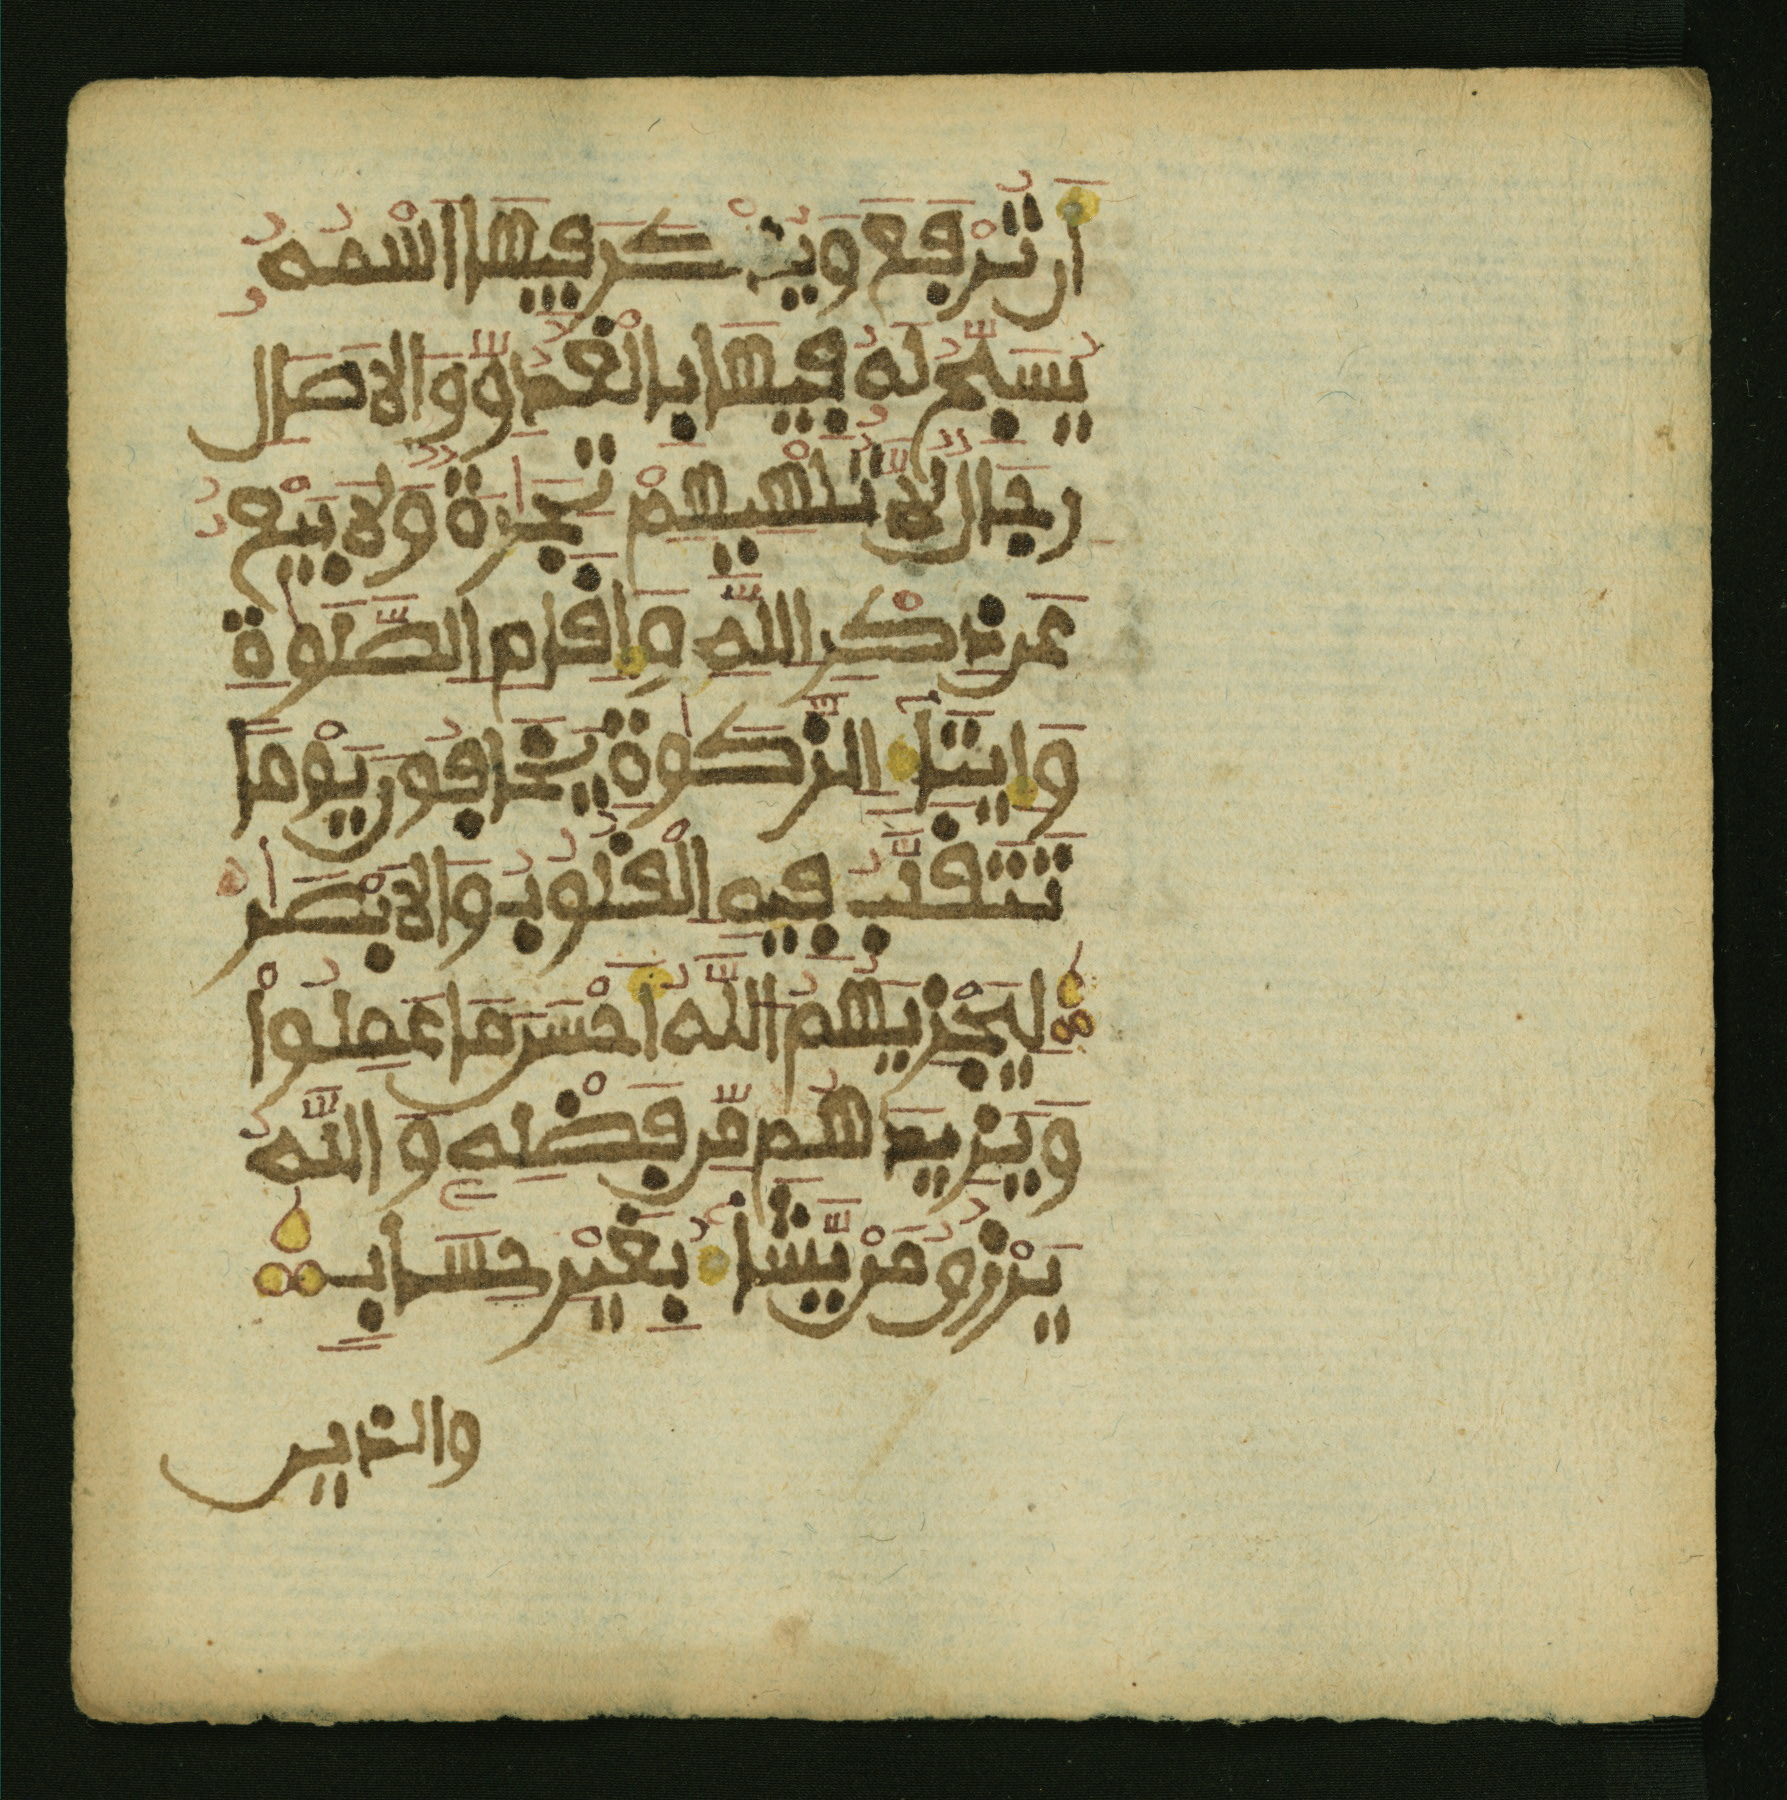 أَن تُرْفَعَ وَيُذْكَرَ فِيهَا اسْمُهُ
يُسَبِّحُ لَهُ فِيهَا بِالْغُدُوِّ وَالَاصَالِ
رِجَالٌ لَّا تُلْهِيهِمْ تِجَٰرَةٌ وَلَا بَيْعٌ
عَن ذِكْرِ اللَّهِ وَإِقَامِ الصَّلَوٰةِ
وَإِيتَآءِ الزَّكَوٰةِ يَخَافُونَ يَوْمًا
تَتَقَلَّبُ فِيهِ الْقُلُوبُ وَالَابْصَٰرُ
لِيَجْزِيَهُمُ اللَّهُ أَحْسَنَ مَا عَمِلُواْ
وَيَزِيدَهُم مِّن فَضْلِهِ وَاللَّهُ
يَرْزُقُ مَنْ يَّشَآءُ بِغَيْرِ حِسَابٍ
والذين